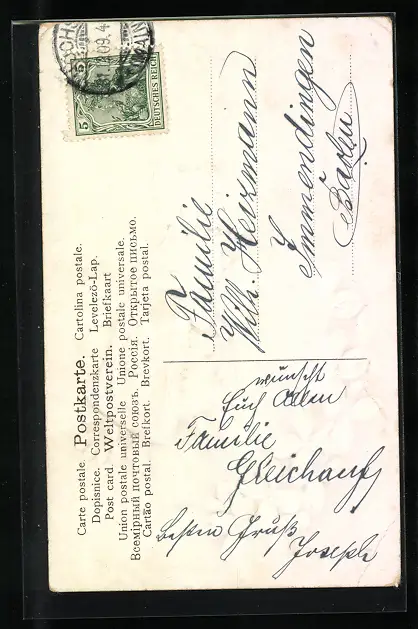 Carte postale. Postkarte. Cartolina postale.
Dopisnice. Correspondenzkarte Levelező-Lap.
Post card. Weltpostverein. Briefkaart
Union postale universelle Unione postale universale.
Всемірный почтовый союзъ. Россія. Открытое письмо.
Cartão postal. Brefkort. Brevkort. Tarjeta postal.
5
DEUTSCHES REICH
09.4
Familie
Wilh. Heizmann
Immendingen
Baden
wünscht
Euch Allen
Familie
Gleichauf
besten Gruß
Joseph